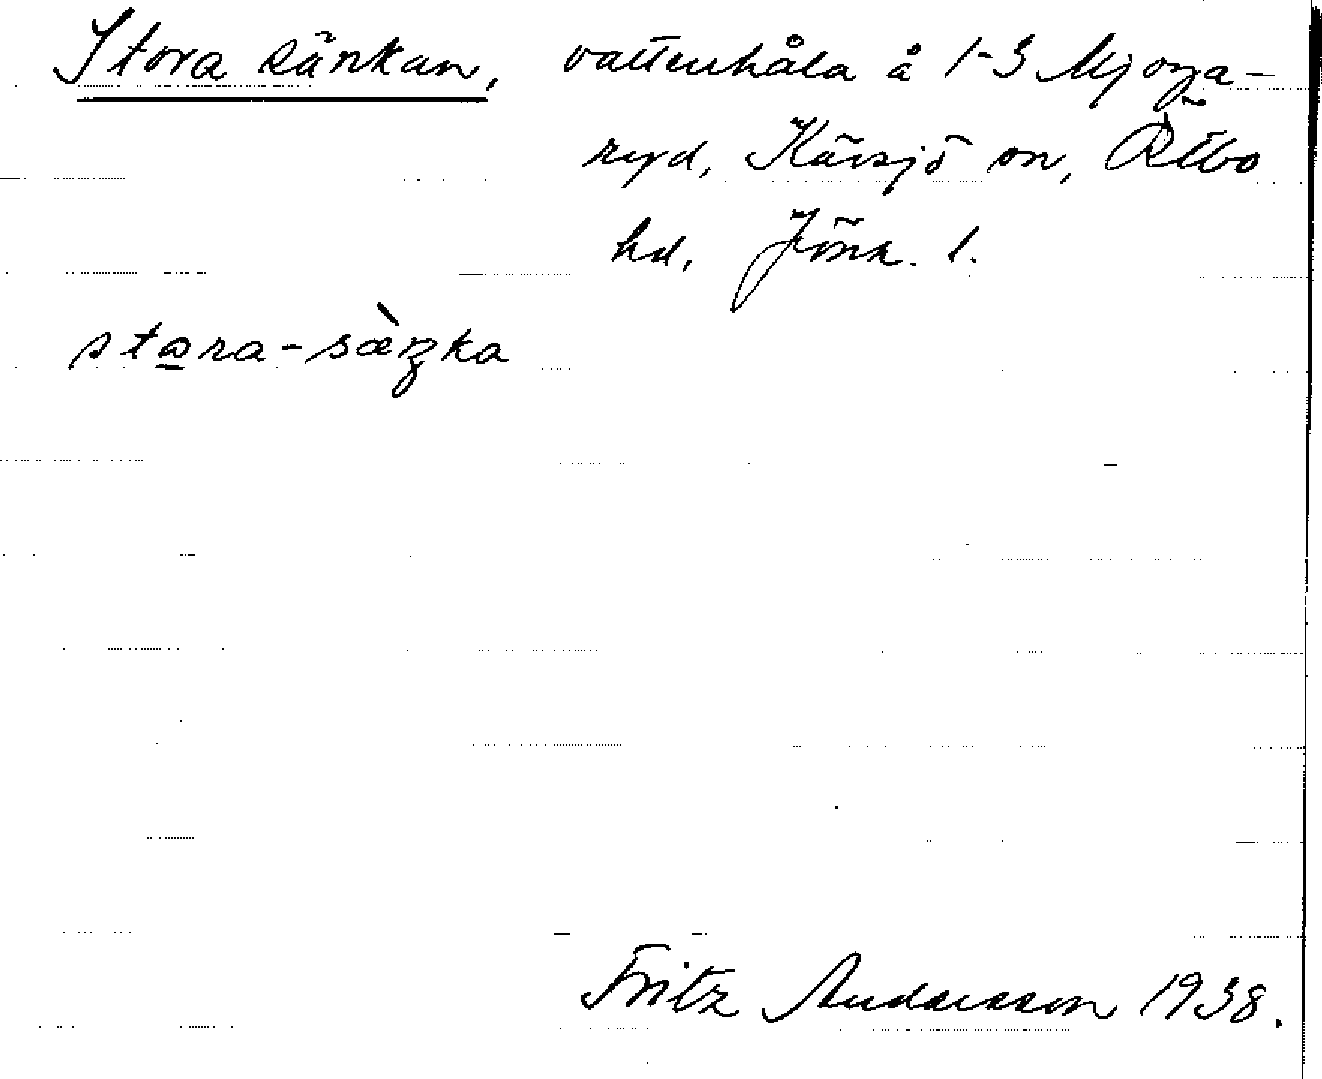 Stora sänkan, vattenhåla å 1-3 Mjoga-
ryd, Kävsjö sn, Östbo
hd, Jönk. l.
stɷra-sæ̀ŋka
Fritz Andersson 1938.